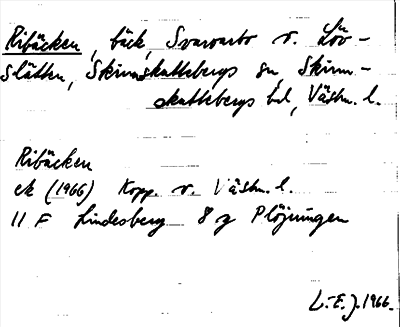 Ribäcken, bäck, Svarvarbo v. Löv-
slätten, Skinnskattebergs sn, Skinn-
skattebergs bd, Västm. l.
Ribäcken
ek (1966) Kopp. v. Västm. l.
11 F Lindesberg 8 g Plöjningen
L.-E. J. 1966.